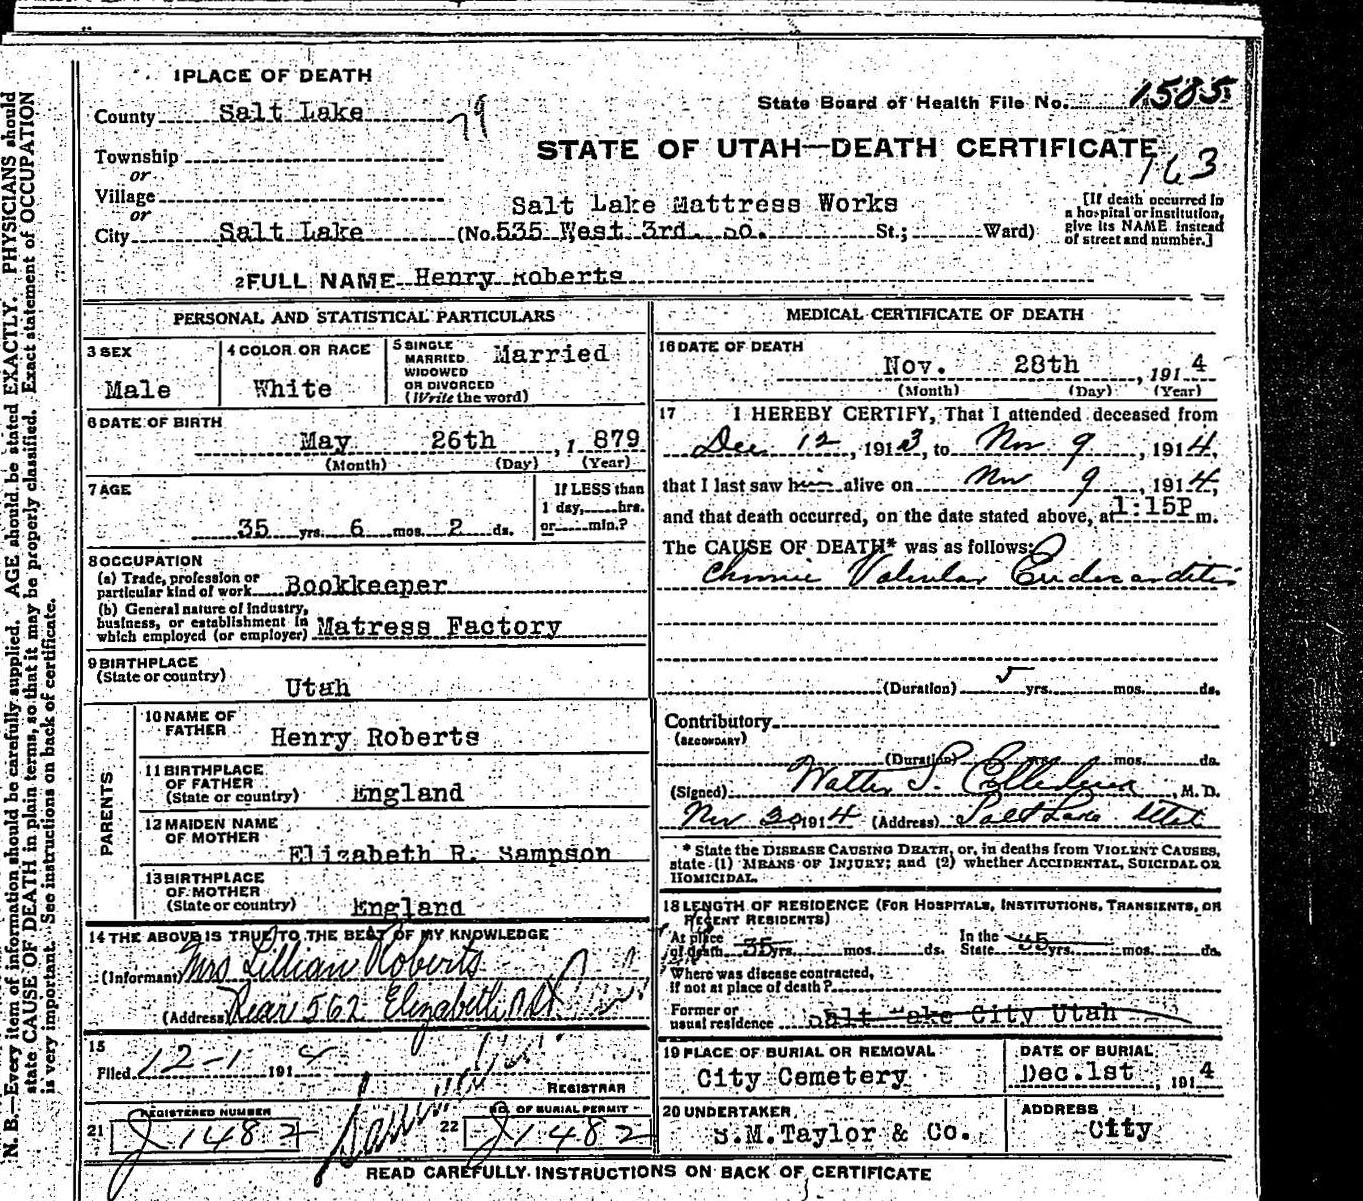 1 PLACE OF DEATH
County Salt Lake 79
Township
or
Village
or
City Salt Lake
State Board of Health File No. 1585
STATE OF UTAH—DEATH CERTIFICATE
163
Salt Lake Mattress Works
(No. 535 West 3rd. So. St.; Ward)
[If death occurred in
a hospital or institution,
give its NAME instead
of street and number.]
2 FULL NAME Henry Roberts
PERSONAL AND STATISTICAL PARTICULARS
3 SEX
Male
4 COLOR OR RACE
White
5 SINGLE
MARRIED
WIDOWED
OR DIVORCED
(Write the word)
Married
6 DATE OF BIRTH
May 26th, 1879
(Month) (Day) (Year)
7 AGE
35 yrs. 6 mos. 2 ds.
If LESS than
1 day, hrs.
or min.?
8 OCCUPATION
(a) Trade, profession or
particular kind of work Bookkeeper
(b) General nature of industry,
business, or establishment in
which employed (or employer) Matress Factory
9 BIRTHPLACE
(State or country)
Utah
PARENTS
10 NAME OF
FATHER
Henry Roberts
11 BIRTHPLACE
OF FATHER
(State or country) England
12 MAIDEN NAME
OF MOTHER
Elizabeth R. Sampson
13 BIRTHPLACE
OF MOTHER
(State or country) England
14 THE ABOVE IS TRUE TO THE BEST OF MY KNOWLEDGE
(Informant) Mrs Lillian Roberts
(Address) Rear 562 Elizabeth St
15
Filed 12-1 1914
REGISTRAR
REGISTERED NUMBER
21 J 1482
NO. OF BURIAL PERMIT
22 J 1482
MEDICAL CERTIFICATE OF DEATH
16 DATE OF DEATH
Nov. 28th, 1914
(Month) (Day) (Year)
17 I HEREBY CERTIFY, That I attended deceased from
Dec 12, 1913, to Nov 9, 1914,
that I last saw him alive on Nov 9, 1914,
and that death occurred, on the date stated above, at 1:15P m.
The CAUSE OF DEATH* was as follows:
Chronic Valvular Endocarditis
(Duration) 5 yrs. mos. ds.
Contributory
(SECONDARY)
(Duration) yrs. mos. ds.
(Signed) Walter S. M. D.
Nov 30, 1914 (Address) Salt Lake Utah
* State the DISEASE CAUSING DEATH, or, in deaths from VIOLENT CAUSES,
state (1) MEANS OF INJURY; and (2) whether ACCIDENTAL, SUICIDAL OR
HOMICIDAL.
18 LENGTH OF RESIDENCE (FOR HOSPITALS, INSTITUTIONS, TRANSIENTS, OR
RECENT RESIDENTS)
At place
of death 35 yrs. mos. ds.
In the
State 35 yrs. mos. ds.
Where was disease contracted,
if not at place of death?
Former or
usual residence Salt Lake City Utah
19 PLACE OF BURIAL OR REMOVAL
City Cemetery
DATE OF BURIAL
Dec. 1st, 1914
20 UNDERTAKER
S.M. Taylor & Co.
ADDRESS
City
READ CAREFULLY INSTRUCTIONS ON BACK OF CERTIFICATE
N. B.—Every item of information should be carefully supplied. AGE should be stated EXACTLY. PHYSICIANS should
state CAUSE OF DEATH in plain terms, so that it may be properly classified. Exact statement of OCCUPATION
is very important. See instructions on back of certificate.